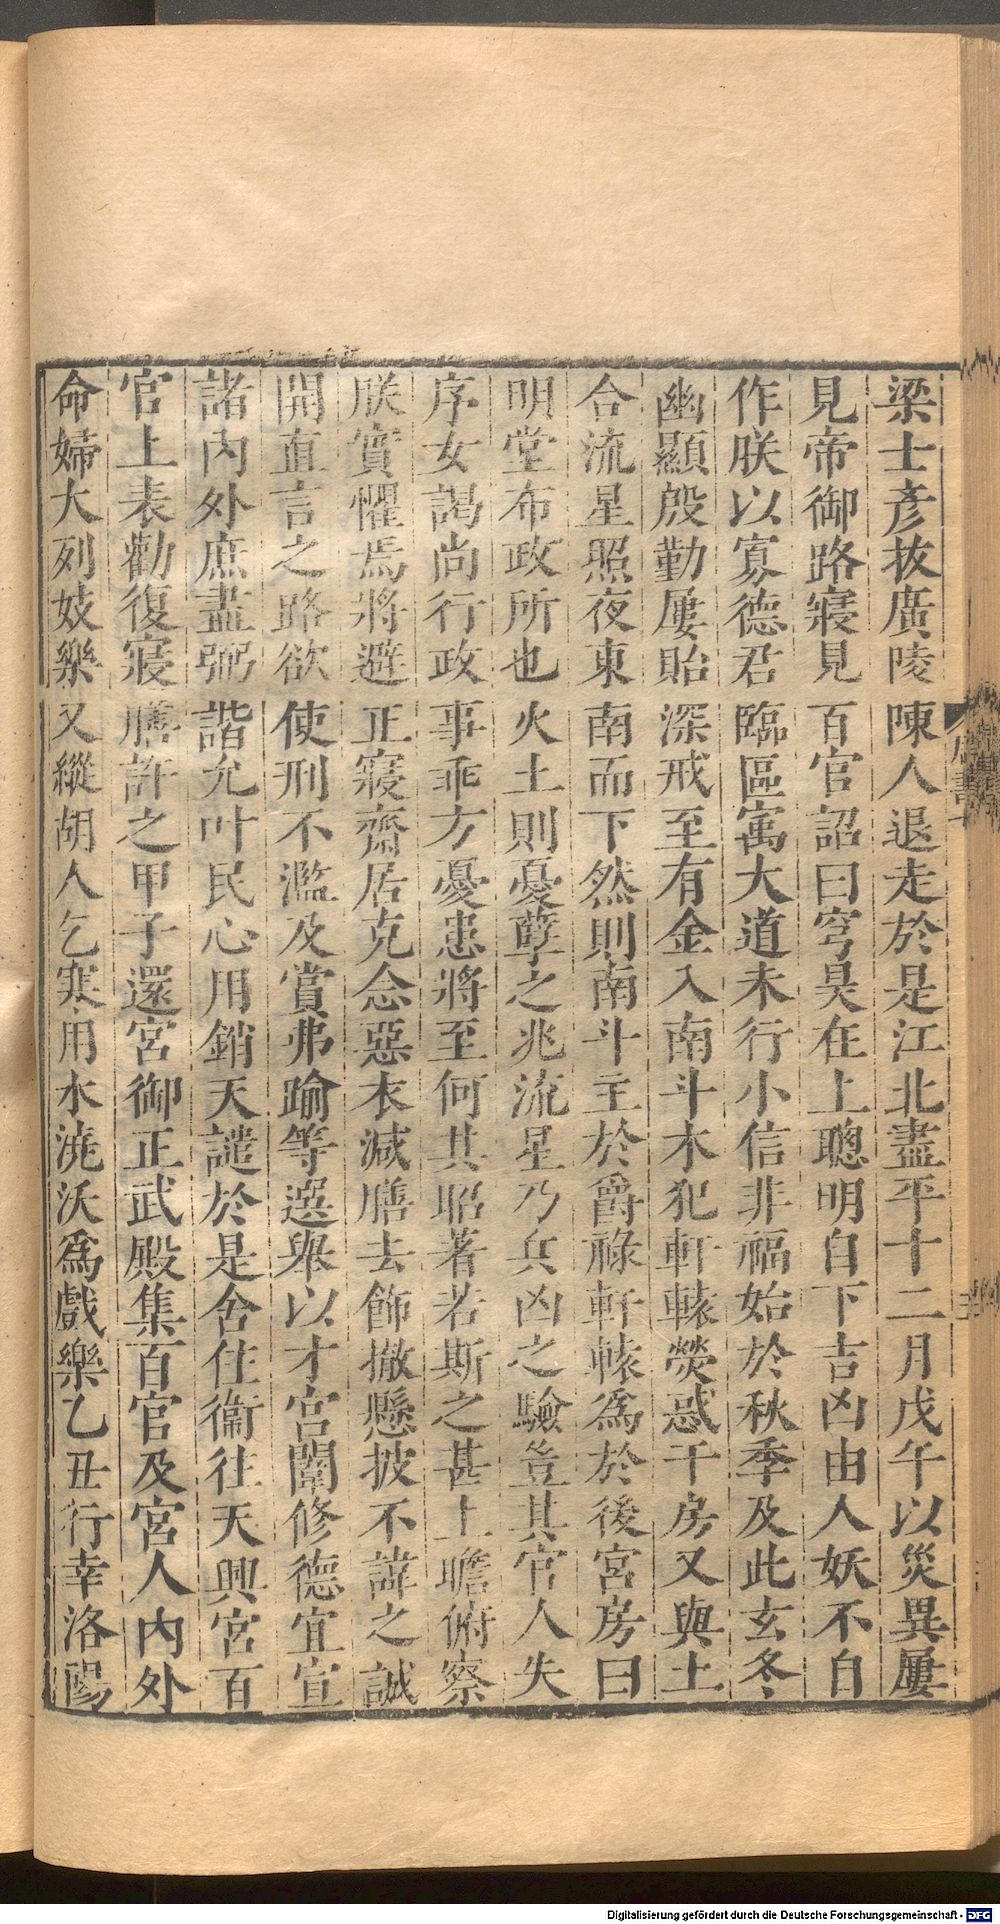 梁士彥拔廣陵陳人退走於是江北盡平十二月戊午以災異屢
見帝御路寢見百官詔曰穹昊在上聰明自下吉凶由人妖不自
作朕以寡德君臨區寓大道未行小信非福始於秋季及此玄冬
幽顯殷勤屢貽深戒至有金入南斗木犯軒轅熒惑干房又與土
合流星照夜東南而下然則南斗主於爵祿軒轅為於後宮房曰
明堂布政所也火土則憂孽之兆流星乃兵凶之驗豈其官人失
序女謁尚行政事乖方憂患將至何其昭著若斯之甚上瞻俯察
朕實懼焉將避正寢齋居克念惡衣減膳去飾撤懸披不諱之誠
開直言之路欲使刑不濫及賞弗踰等選舉以才宮闈修德宜宣
諸內外庶盡弼諧允叶民心用銷天譴於是舍住衞往天興宮百
官上表勸復寢膳許之甲子還宮御正武殿集百官及宮人內外
命婦大列妓樂又縱胡人乞寒用水澆沃為戲樂乙丑行幸洛陽
Digitalisierung gefördert durch die Deutsche Forschungsgemeinschaft - DFG